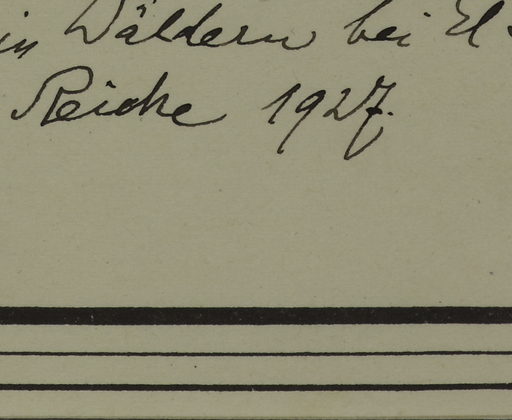 in Wäldern bei El
Reiche 1927.